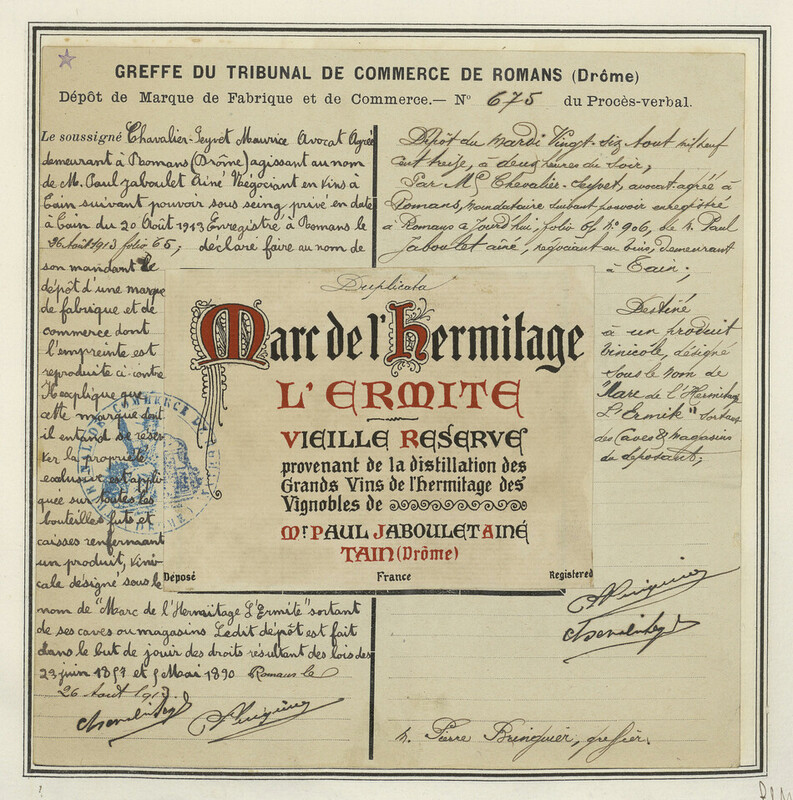 GREFFE DU TRIBUNAL DE COMMERCE DE ROMANS (Drôme)
Dépôt de Marque de Fabrique et de Commerce.— N° 675 du Procès-verbal.
Le soussigné Chavalier-Peyret Maurice Avocat Agréé
demeurant à Romans (Drôme) agissant au nom
de M. Paul Jaboulet Ainé Négociant en vins à
Tain suivant pouvoir sous seing privé en date
à Tain du 20 Août 1913 Enregistré à Romans le
26 Août 1913 folio 65; déclaré faire au nom de
son mandant le
dépôt d'une marque
de fabrique et de
commerce dont
l'empreinte est
reproduite ci-contre
Il explique que
cette marque dont
il entend se réser
ver la propriété
exclusive est appli
quée sur toutes les
bouteilles futs et
caisses renfermant
un produit, vini
cale désigné sous le
nom de "Marc de l'Hermitage L'Ermite" sortant
de ses caves ou magasins Ledit dépôt est fait
dans le but de jouir des droits résultant des lois des
23 juin 1857 et 5 Mai 1890 Romans le
26 Août 1913
Dépôt du Mardi Vingt-six Aout mil neuf
cent treize, à deux heures du soir,
Par Me Chevalier-Peyret, avocat-agréé à
Romans, mandataire suivant pouvoir enregistré
à Romans aJourd'hui, folio 65 N° 906, de M. Paul
Jaboulet aîné, négociant en vins, demeurant
à Tain;
Destiné
à un produit
vinicole, désigné
sous le nom de
"Marc de l'Hermitage
L'Ermite" sortant
des Caves & magasins
du déposant;
Duplicata
Marc de l'hermitage
L'ERMITE
VIEILLE RESERVE
provenant de la distillation des
Grands Vins de l'hermitage des
Vignobles de
Mr PAUL JABOULET AINÉ
TAIN (Drôme)
Déposé France Registered
M. Pierre Bringuier, greffier.